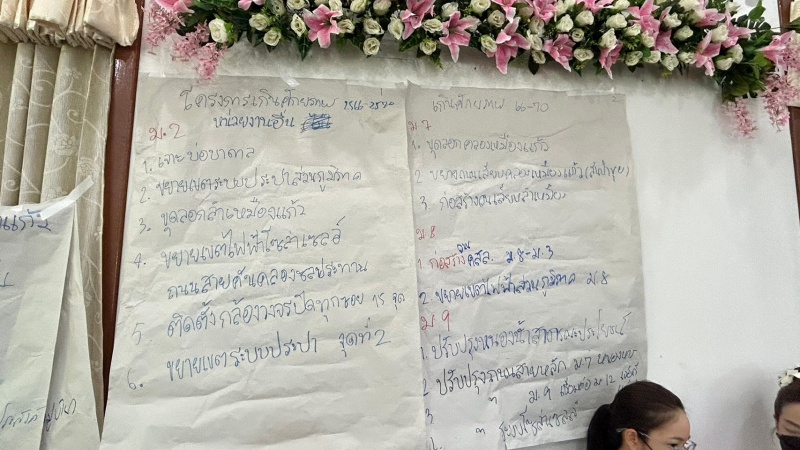 โครงการเกินศักยภาพ
หน่วยงานอื่น
ม.2
1. เจาะบ่อบาดาล
2. ขยายเขตระบบประปาส่วนภูมิภาค
3. ขุดลอกลำเหมืองแก้ว
4. ขยายเขตไฟฟ้าโซล่าเซลล์
ถนนสายคันคลองชลประทาน
5. ติดตั้งกล้องวงจรปิดทุกซอย 15 จุด
6. ขยายเขตระบบประปา จุดที่ 2
เกินศักยภาพ 66-70
ม 7
1. ขุดลอกคลองเหมืองแก้ว
2 ขยายถนนเลียบคลองเหมืองแก้ว
3. ก่อสร้างถนนเลียบลำเหมือง
ม 8
1 ก่อสร้าง คสล. ม.8-ม.3
2. ขยายเขตไฟฟ้าส่วนภูมิภาค ม.8
ม 9
1. ปรับปรุงหนองน้ำสาธารณะประโยชน์
2 ปรับปรุงถนนสายหลัก ม 7
ม.9 เชื่อมต่อ ม 12
3